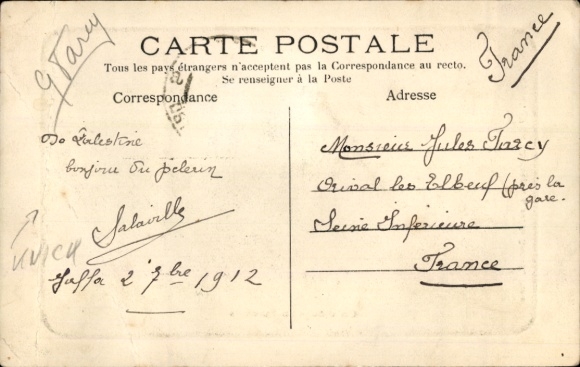 G Tarcy
France
CARTE POSTALE
Tous les pays étrangers n'acceptent pas la Correspondance au recto.
Se renseigner à la Poste
Correspondance
Adresse
De Palestine
bonjour du pèlerin
Salaville
Jaffa 2 7bre 1912
Monsieur Jules Tarcy
Orival les Elbeuf (près la
gare.
Seine Inférieure
France